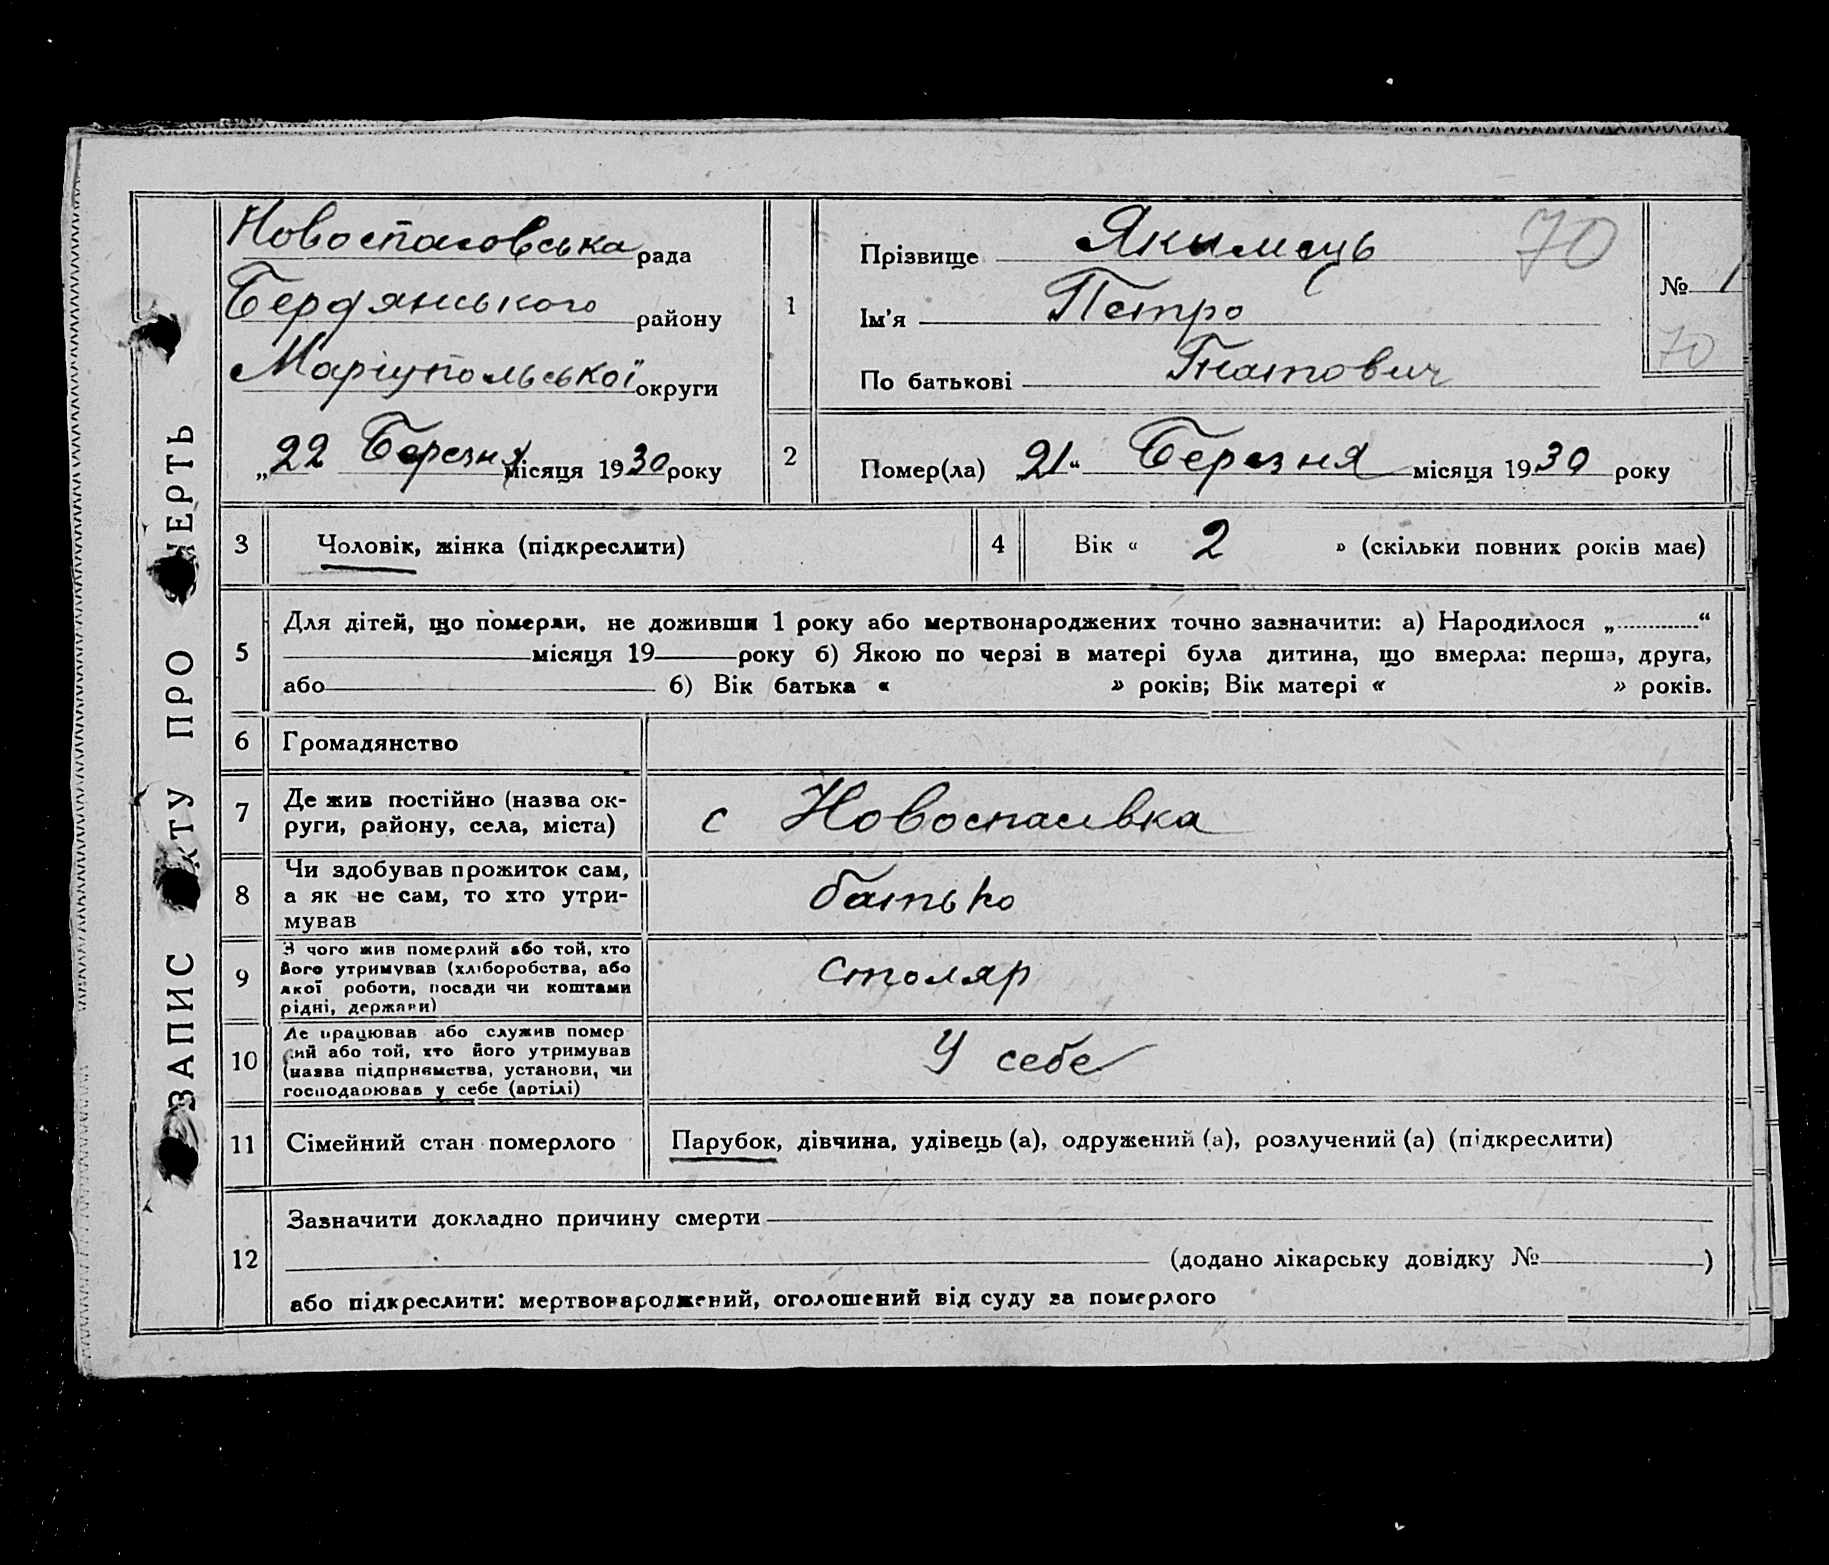 ЗАПИС АКТУ ПРО СМЕРТЬ
Новоспасовська рада
Бердянського району
Маріупольської округи
„22 Березня місяця 1930 року
1
Прізвище Якимець
Ім'я Петро
По батькові Гнатович
70
№ 1
70
2
Помер(ла) „21“ Березня місяця 1930 року
3
Чоловік, жінка (підкреслити)
4
Вік « 2 » (скільки повних років має)
5
Для дітей, що померли, не доживши 1 року або мертвонароджених точно зазначити: а) Народилося „ “
місяця 19 року б) Якою по черзі в матері була дитина, що вмерла: перша, друга,
або б) Вік батька « » років; Вік матері « » років.
6
Громадянство
7
Де жив постійно (назва ок-
руги, району, села, міста)
с Новоспасивка
8
Чи здобував прожиток сам,
а як не сам, то хто утри-
мував
батько
9
З чого жив померлий або той, хто
його утримував (хліборобства, або
якої роботи, посади чи коштами
рідні, держави)
столяр
10
Де працював або служив помер
лий або той, хто його утримував
(назва підприємства, установи, чи
господарював у себе (артілі)
У себе
11
Сімейний стан померлого
Парубок, дівчина, удівець (а), одружений (а), розлучений (а) (підкреслити)
12
Зазначити докладно причину смерти
(додано лікарську довідку № )
або підкреслити: мертвонароджений, оголошений від суду за померлого